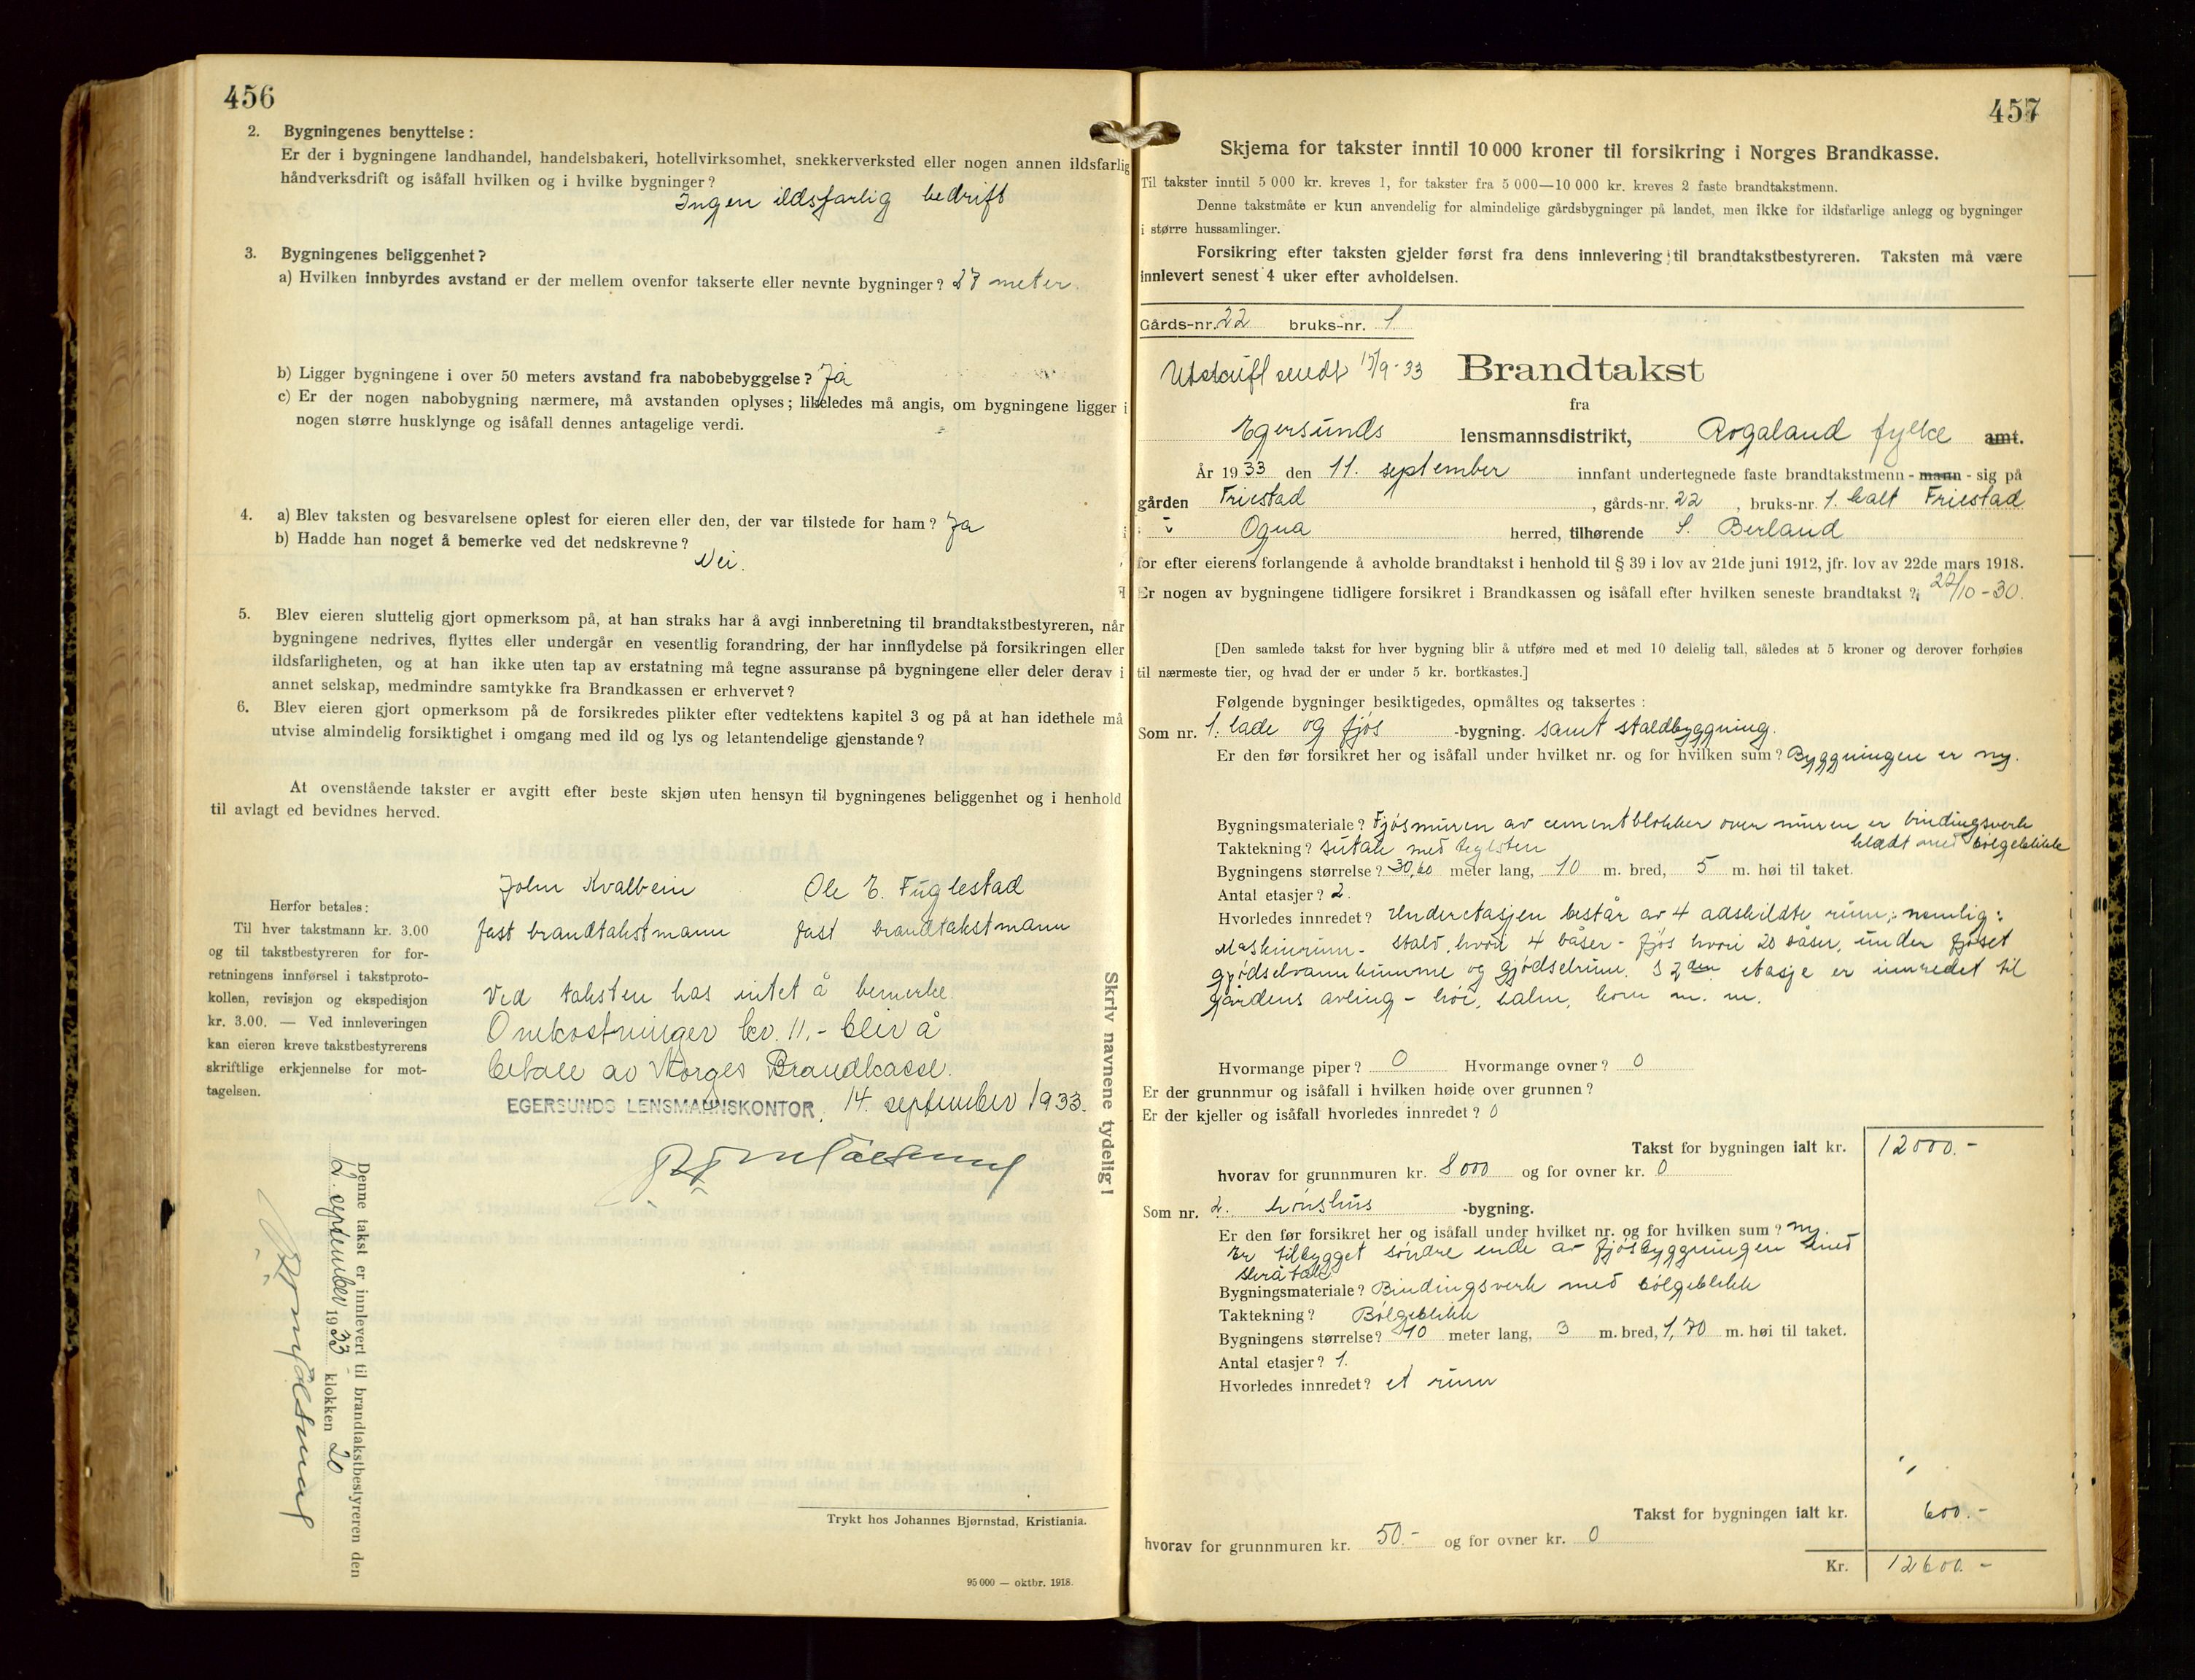 456
2. Bygningenes benyttelse:
Er der i bygningene landhandel, handelsbakeri, hotellvirksomhet, snekkerverksted eller nogen annen ildsfarlig
håndverksdrift og isåfall hvilken og i hvilke bygninger?
Ingen ildsfarlig bedrift
3. Bygningenes beliggenhet?
a) Hvilken innbyrdes avstand er der mellem ovenfor takserte eller nevnte bygninger? 27 meter.
b) Ligger bygningene i over 50 meters avstand fra nabobebyggelse? Ja
c) Er der nogen nabobygning nærmere, må avstanden oplyses; likeledes må angis, om bygningene ligger i
nogen større husklynge og isåfall dennes antagelige verdi.
4. a) Blev taksten og besvarelsene oplest for eieren eller den, der var tilstede for ham? Ja
b) Hadde han noget å bemerke ved det nedskrevne?
Nei.
5. Blev eieren sluttelig gjort opmerksom på, at han straks har å avgi innberetning til brandtakstbestyreren, når
bygningene nedrives, flyttes eller undergår en vesentlig forandring, der har innflydelse på forsikringen eller
ildsfarligheten, og at han ikke uten tap av erstatning må tegne assuranse på bygningene eller deler derav i
annet selskap, medmindre samtykke fra Brandkassen er erhvervet?
6. Blev eieren gjort opmerksom på de forsikredes plikter efter vedtektens kapitel 3 og på at han idethele må
utvise almindelig forsiktighet i omgang med ild og lys og letantendelige gjenstande?
At ovenstående takster er avgitt efter beste skjøn uten hensyn til bygningenes beliggenhet og i henhold
til avlagt ed bevidnes herved.
John Kvalbein Ole E. Fuglestad
fast brandtakstmann fast brandtakstmann
Herfor betales:
Til hver takstmann kr. 3.00
og til takstbestyreren for for-
retningens innførsel i takstproto-
kollen, revisjon og ekspedisjon
kr. 3.00. — Ved innleveringen
kan eieren kreve takstbestyrerens
skriftlige erkjennelse for mot-
tagelsen.
Ved taksten has intet å bemerke.
Omkostninger kr. 11,- blir å
betale av Norges Brandkasse.
EGERSUNDS LENSMANNSKONTOR, 14. september 1933.
Skriv navnene tydelig!
Denne takst er innlevert til brandtakstbestyreren den
12. september 1933 klokken 20
Trykt hos Johannes Bjørnstad, Kristiania.
95 000 — oktbr. 1918.
457
Skjema for takster inntil 10 000 kroner til forsikring i Norges Brandkasse.
Til takster inntil 5 000 kr. kreves 1, for takster fra 5 000—10 000 kr. kreves 2 faste brandtakstmenn.
Denne takstmåte er kun anvendelig for almindelige gårdsbygninger på landet, men ikke for ildsfarlige anlegg og bygninger
i større hussamlinger.
Forsikring efter taksten gjelder først fra dens innlevering til brandtakstbestyreren. Taksten må være
innlevert senest 4 uker efter avholdelsen.
Gårds-nr. 22 bruks-nr. 1.
Utskrift sendt 15/9-33 Brandtakst
fra
Egersunds lensmannsdistrikt, Rogaland fylke amt.
År 1933 den 11. september innfant undertegnede faste brandtakstmenn - mann - sig på
gården Friestad, gårds-nr. 22, bruks-nr. 1. kalt Friestad
i Ogna herred, tilhørende S. Berland
for efter eierens forlangende å avholde brandtakst i henhold til § 39 i lov av 21de juni 1912, jfr. lov av 22de mars 1918.
Er nogen av bygningene tidligere forsikret i Brandkassen og isåfall efter hvilken seneste brandtakst? 22/10-30.
[Den samlede takst for hver bygning blir å utføre med et med 10 delelig tall, således at 5 kroner og derover forhøies
til nærmeste tier, og hvad der er under 5 kr. bortkastes.]
Følgende bygninger besiktigedes, opmåltes og taksertes:
Som nr. 1. lade og fjøs -bygning. samt staldbyggning.
Er den før forsikret her og isåfall under hvilket nr. og for hvilken sum? Byggningen er ny.
Bygningsmateriale? Fjøsmuren av cementblokker over muren er bindingsverk
klædt med bølgeblikk
Taktekning? sutak med teglsten
Bygningens størrelse? 30,60 meter lang, 10 m. bred, 5 m. høi til taket.
Antal etasjer? 2.
Hvorledes innredet? Underetasjen består av 4 adskildte rum, nemlig:
Maskinrum - stald, hvori 4 båser - fjøs hvori 20 båser, under fjøset
gjødselvannkumme og gjødselrum. I 2den etasje er innredet til
gårdens avling - høi, halm, korn m. m.
Hvormange piper? 0 Hvormange ovner? 0
Er der grunnmur og isåfall i hvilken høide over grunnen?
Er der kjeller og isåfall hvorledes innredet? 0
Takst for bygningen ialt kr. 12000.-
hvorav for grunnmuren kr. 8000 og for ovner kr. 0
Som nr. 2. hønshus -bygning.
Er den før forsikret her og isåfall under hvilket nr. og for hvilken sum? ny.
Er tilbygget søndre ende av fjøsbyggningen med
skråtak
Bygningsmateriale? Bindingsverk med bølgeblikk
Taktekning? Bølgeblikk
Bygningens størrelse? 10 meter lang, 3 m. bred, 1,70 m. høi til taket.
Antal etasjer? 1.
Hvorledes innredet? et rum
Takst for bygningen ialt kr. 600.-
hvorav for grunnmuren kr. 50.- og for ovner kr. 0
Kr. 12600.-